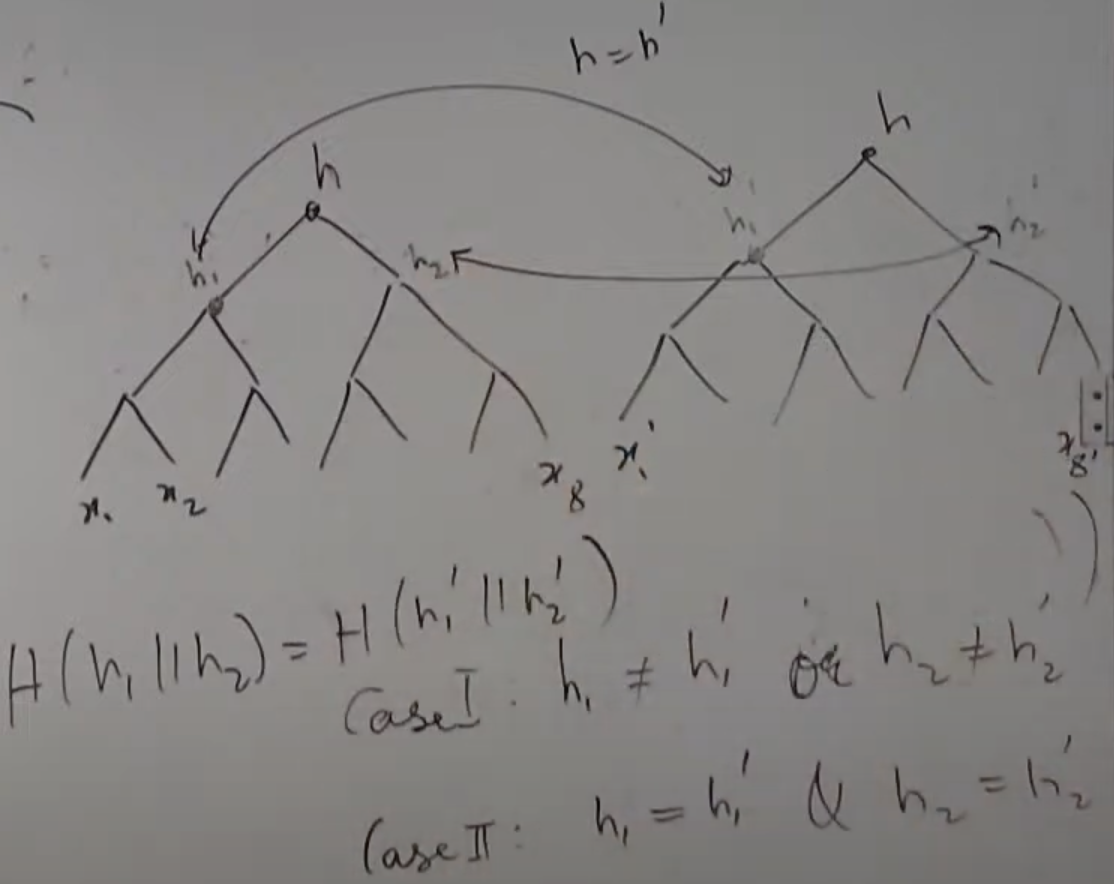 h = h'
h
h
h₁
h₂
h₁'
h₂'
x₁
x₂
x₈
x₁'
x₈'
H(h₁ || h₂) = H(h₁' || h₂')
Case I : h₁ ≠ h₁' or h₂ ≠ h₂'
Case II : h₁ = h₁' & h₂ = h₂'